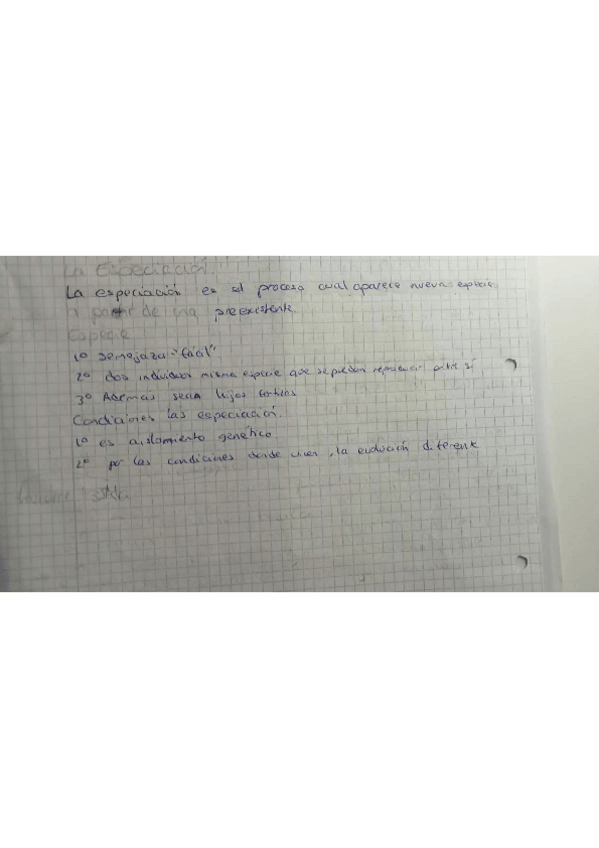 La Especiación.
La especiación es el proceso cual aparece nueva especie
a partir de una preexistente.
Especie
1º Semejaza "fácil"
2º dos individuos misma especie que se puedan reproducir entre sí
3º Además sean hijos fertiles
Condiciones las especiación.
1º es aislamiento genético
2º por las condiciones donde viven, la evolución diferente